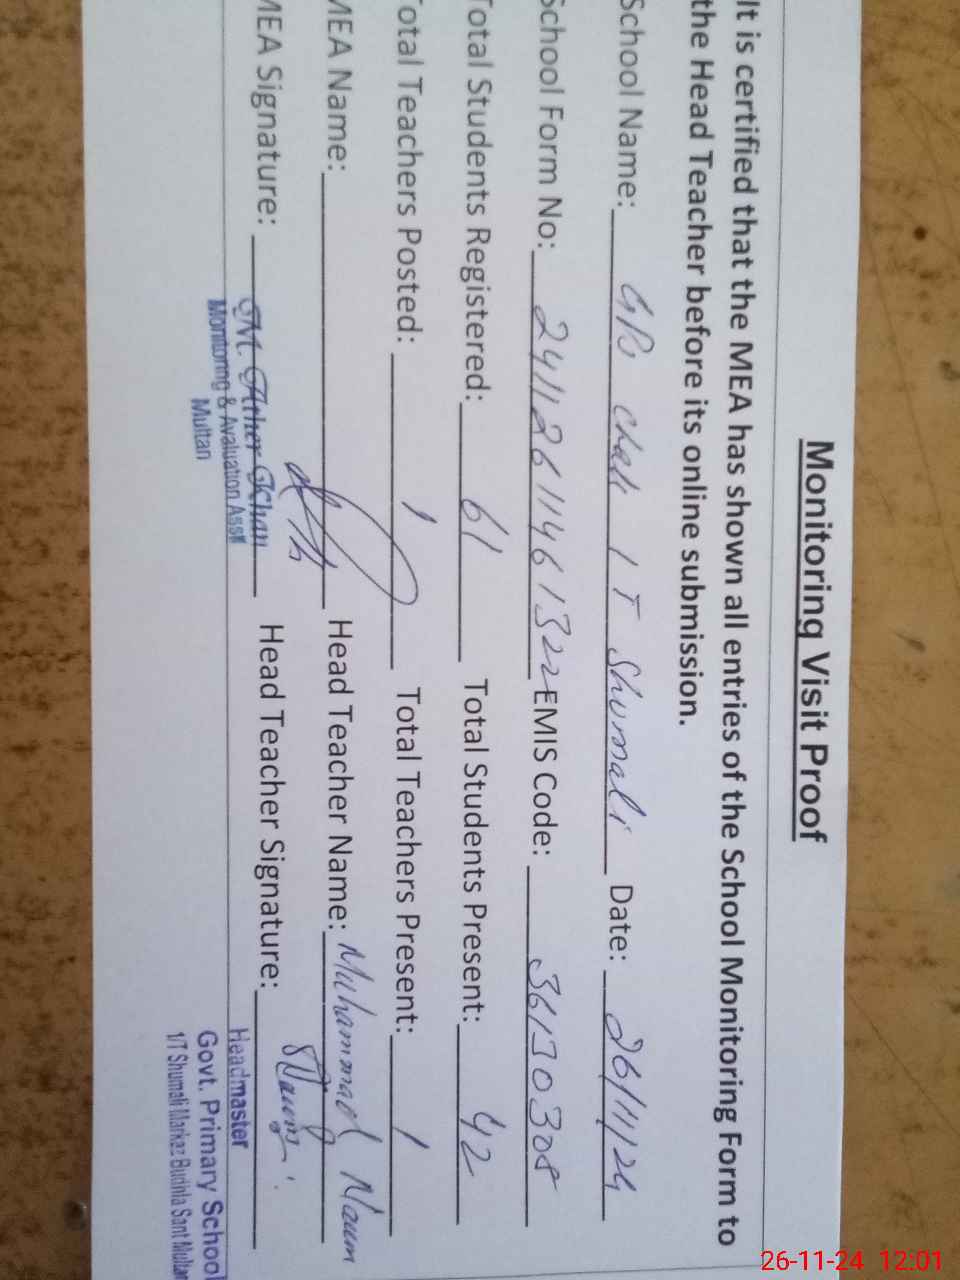 Monitoring Visit Proof
It is certified that the MEA has shown all entries of the School Monitoring Form to
the Head Teacher before its online submission.
School Name: GPS chak 1 T Shumali Date: 26/11/24
School Form No: 24112611461322 EMIS Code: 36130308
Total Students Registered: 61 Total Students Present: 42
Total Teachers Posted: 1 Total Teachers Present: 1
MEA Name: Head Teacher Name: Muhammad Naum
MEA Signature: Head Teacher Signature: Naum
M. Ather Khan
Monitoring & Avaluation Asstt
Multan
Headmaster
Govt. Primary School
1/T Shumali Markaz Budhla Sant Multan
26-11-24 12:01